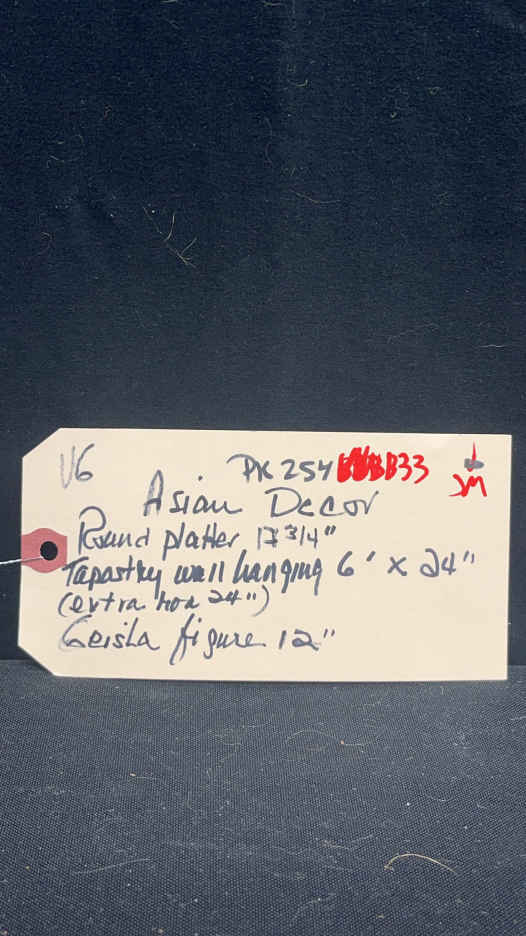 V6 PK 254 B33 JM
Asian Decor
Round platter 17 3/4"
Tapastry wall hanging 6' x 24"
(extra 24")
Geisha figure 12"